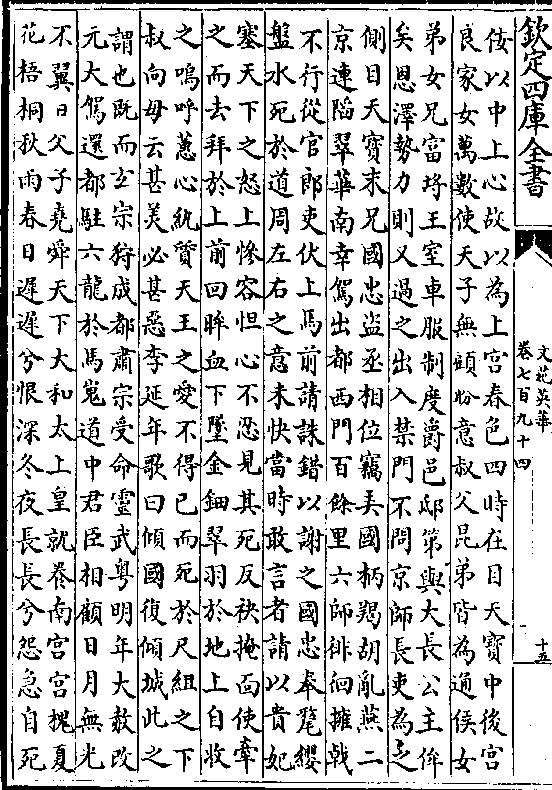 欽定四庫全書
文苑英華
卷七百九十四
十五
佞以中上心故以為上宮春色四時在目天寶中後宮
良家女萬數使天子無顧盼意叔父昆弟皆為通侯女
弟女兄富埒王室車服制度爵邑邸第與大長公主侔
矣恩澤勢力則又過之出入禁門不問京師長吏為之
側目天寶末兄國忠盜丞相位竊弄國柄羯胡亂燕二
京連陷翠華南幸駕出都西門百餘里六師徘徊擁戟
不行從官郎吏伏上馬前請誅錯以謝之國忠奉氂纓
盤水死於道周左右之意未快當時敢言者請以貴妃
塞天下之怒上慘容怛心不忍見其死反袂掩面使牽
之而去拜於上前回眸血下墜金鈿翠羽於地上自收
之嗚呼蕙心紈質天王之愛不得已而死於尺組之下
叔向母云甚美必甚惡李延年歌曰傾國復傾城此之
謂也既而玄宗狩成都肅宗受命靈武粤明年大赦改
元大駕還都駐六龍於馬嵬道中君臣相顧日月無光
不翼日父子堯舜天下大和太上皇就養南宮宮槐夏
花梧桐秋雨春日遲遲兮恨深冬夜長長兮怨急自死